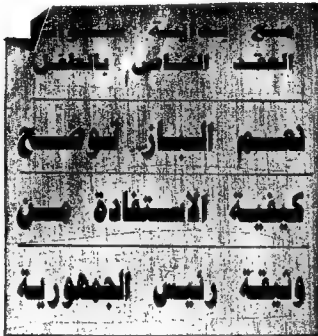 مع بداية سنوات
العقد الخاص بالطفل
نعم الباز توضح
كيفية الاستفادة من
وثيقة رئيس الجمهورية